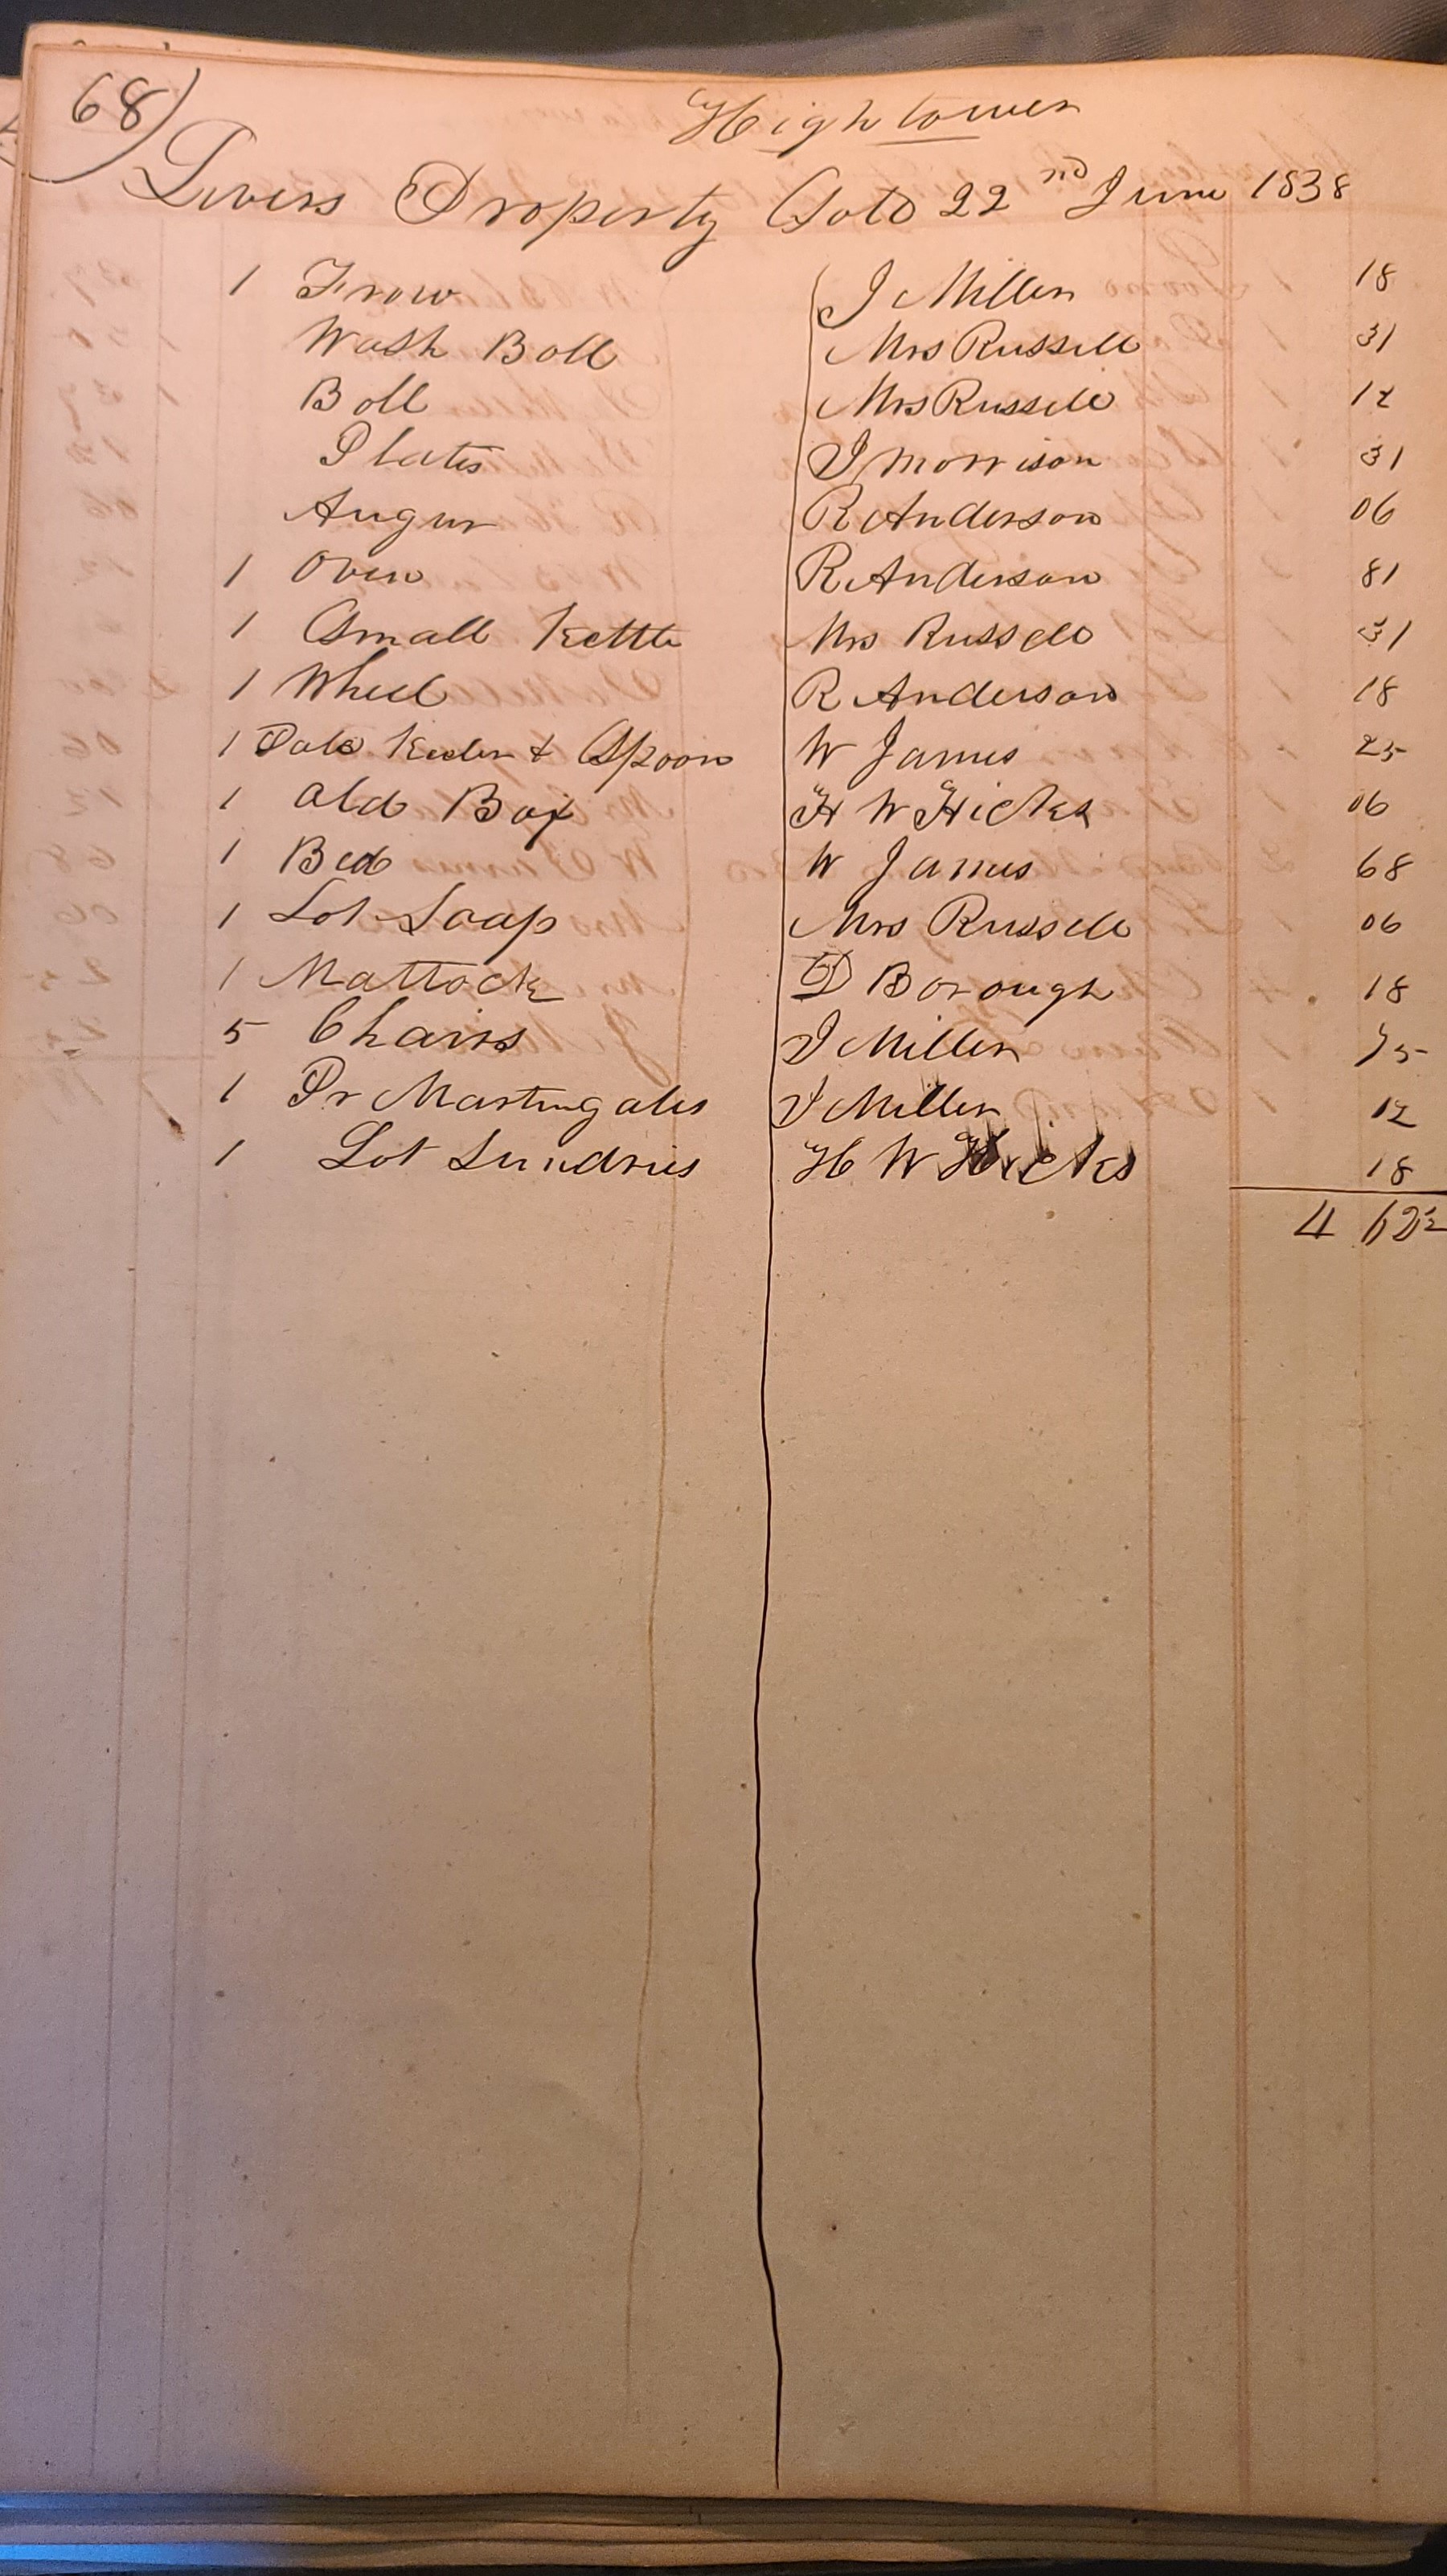 68)
Hightower
Divers Property Sold 22nd June 1838
1 Frow J Miller 18
Wash Boll Mrs Russell 31
Boll Mrs Russell 12
Plates J Morrison 31
Augur R Anderson 06
1 Oven R Anderson 81
1 Small Kettle Mrs Russell 31
1 Wheel R Anderson 18
1 & Spoon W James 25
1 Old Box H W Hicks 06
1 Bed W James 68
1 Lot Soap Mrs Russell 06
1 Mattock D Borough 18
5 Chairs J Miller 75
1 Pr Martingales J Miller 12
1 Lot Sundries H W Hicks 18
4